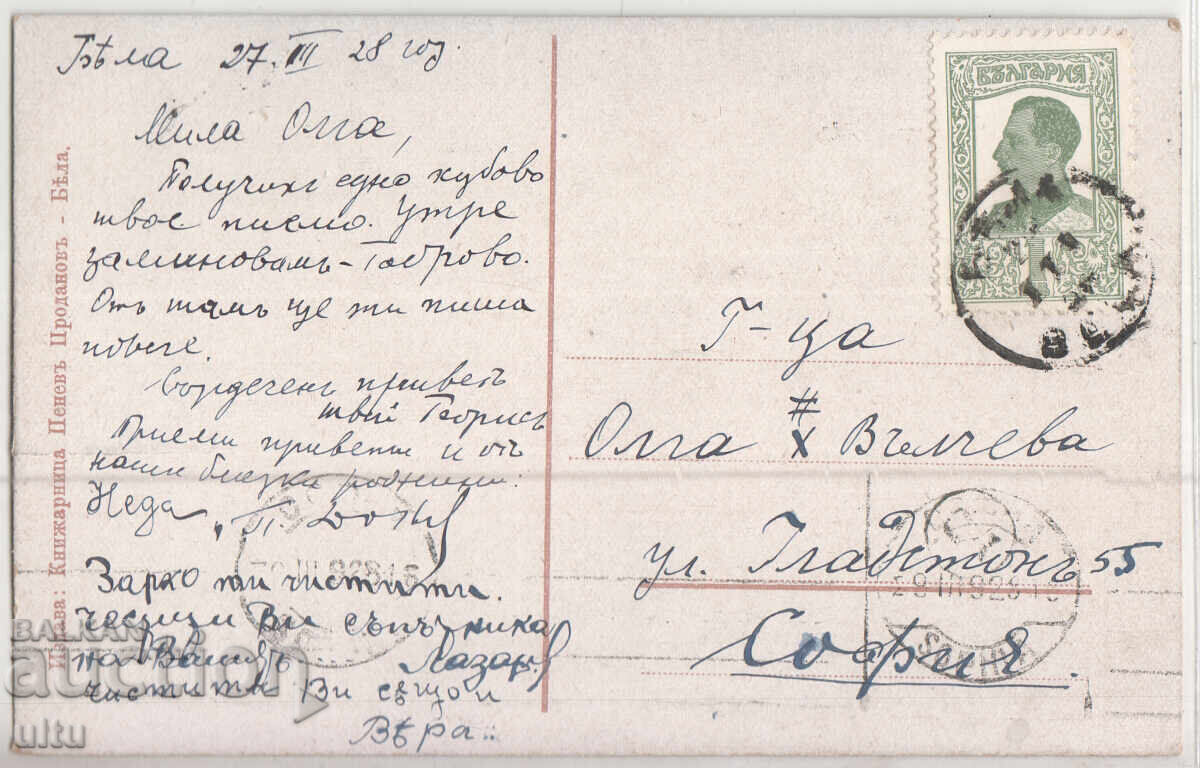 Бѣла 27. III 28 год.
Мила Олга,
Получихъ едно хубаво
твое писмо. Утре
заминовамъ - Габрово.
Отъ тамъ ще ти пиша
повече.
Сърдеченъ привет
твой
Приеми привети и отъ
наши близки роднини:
Неда
Зарко ти чистити.
Ви съпѫтника
Лазаръ
чистити Ви сѫщо и
Вѣра..
Издава: Книжарница Пеневъ Продановъ - Бѣла.
БЪЛГАРИЯ
1
БѢЛА
Г-ца
Олга Вълчева
ул. Гладстонъ 55
София.
SOFIA
BALKAN
auction
ultu